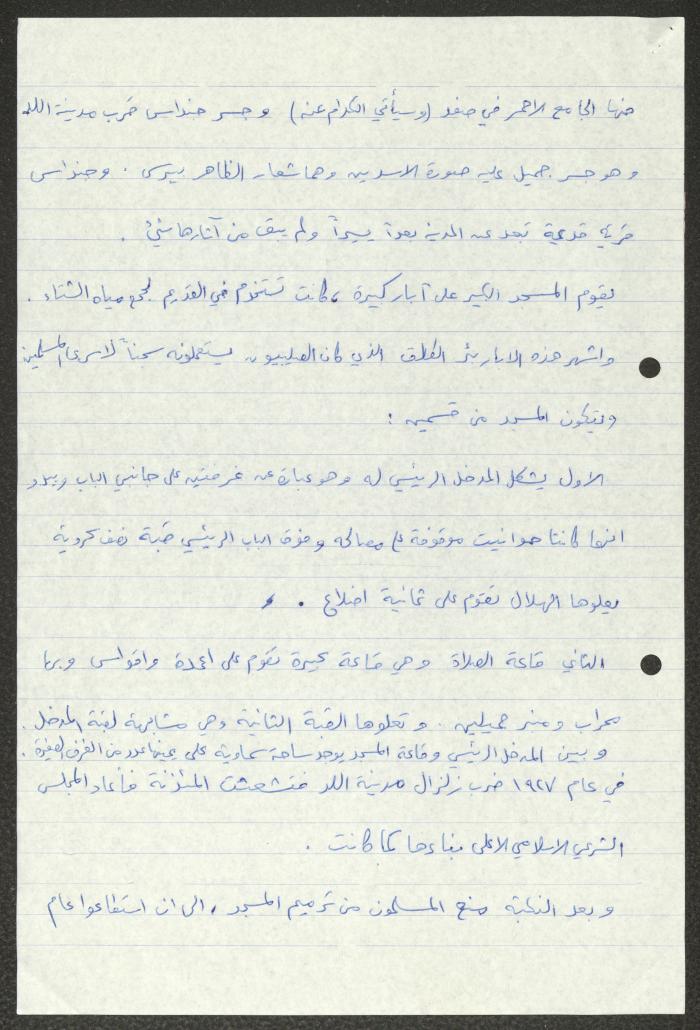 منها الجامع الاحمر في صفد (وسيأتي الكلام عنه) وجسر جنداس قرب مدينة اللد
وهو جسر جميل عليه صورة الاسدين وهما شعار الظاهر بيبرس . وجنداس
قرية قديمة تبعد عن المدينة بعداً يسيراً ولم يبق من آثارها شيئ .
يقوم المسجد الكبير على آبار كبيرة ، كانت تستخدم في القديم لجمع مياه الشتاء .
واشهر هذه الابار بئر الطلق الذي كان الصليبيون يستعملونه سجناً لاسرى المسلمين
ويتكون المسجد من قسمين :
الاول يشكل المدخل الرئيسي له وهو عبارة عن غرفتين على جانبي الباب ويبدو
انهما كانتا حوانيت موقوفة على مصالحه وفوق الباب الرئيسي قبة نصف كروية
يعلوها الهلال تقوم على ثمانية اضلاع .
الثاني قاعة الصلاة وهي قاعة كبيرة تقوم على اعمدة واقواس وبها
محراب ومنبر جميلين . وتعلوها القبة الثانية وهي مشابهة لقبة المدخل .
وبين المدخل الرئيسي وقاعة المسجد يوجد ساحة سماوية على يمينها عدد من الغرف الصغيرة .
في عام ١٩٢٧ ضرب زلزال مدينة اللد فتشعثت المئذنة فأعاد المجلس
الشرعي الاسلامي الاعلى بناءها كما كانت .
وبعد النكبة منع المسلمون من ترميم المسجد ، الى ان استطاعوا عام